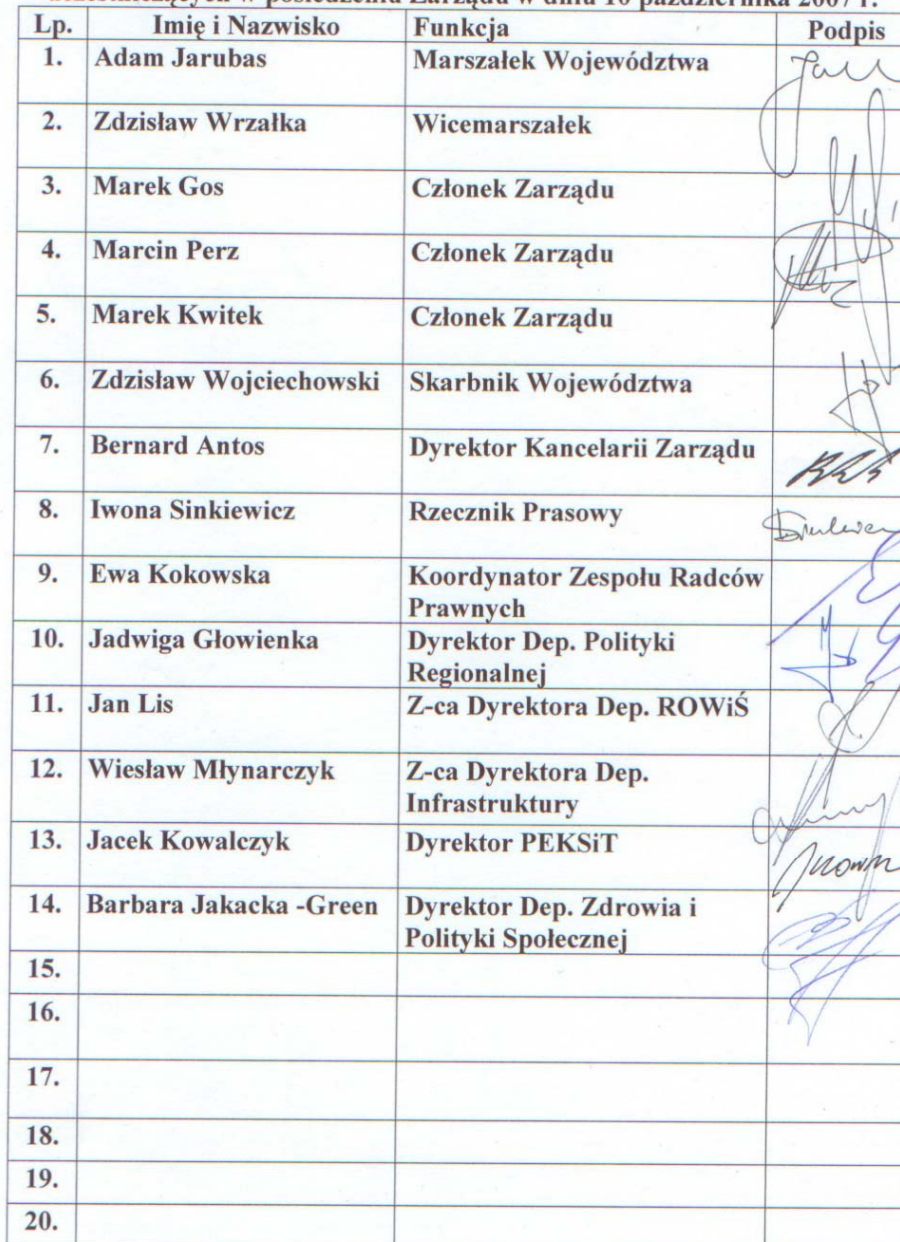 w posiedzeniu Zarządu w dniu 10 października 2007 r.
Lp. Imię i Nazwisko Funkcja Podpis
1. Adam Jarubas Marszałek Województwa
2. Zdzisław Wrzałka Wicemarszałek
3. Marek Gos Członek Zarządu
4. Marcin Perz Członek Zarządu
5. Marek Kwitek Członek Zarządu
6. Zdzisław Wojciechowski Skarbnik Województwa
7. Bernard Antos Dyrektor Kancelarii Zarządu
8. Iwona Sinkiewicz Rzecznik Prasowy
9. Ewa Kokowska Koordynator Zespołu Radców
Prawnych
10. Jadwiga Głowienka Dyrektor Dep. Polityki
Regionalnej
11. Jan Lis Z-ca Dyrektora Dep. ROWiŚ
12. Wiesław Młynarczyk Z-ca Dyrektora Dep.
Infrastruktury
13. Jacek Kowalczyk Dyrektor PEKSiT
14. Barbara Jakacka -Green Dyrektor Dep. Zdrowia i
Polityki Społecznej
15.
16.
17.
18.
19.
20.